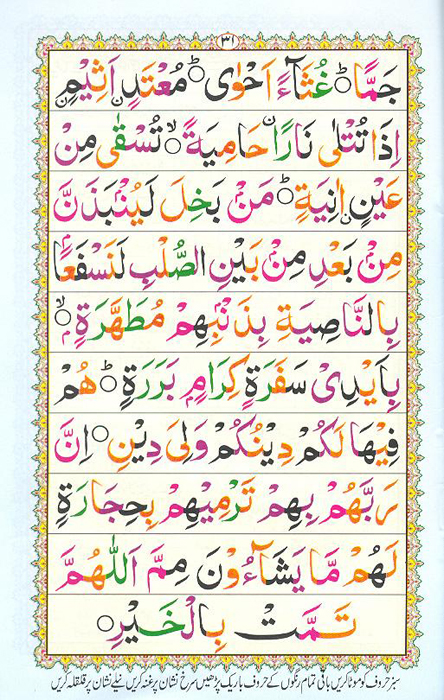 ٣١
جَمًّا ۝ غُثَآءً اَحْوٰى ۝ مُعْتَدٍ اَثِيْمٍ
اِذَا تُتْلٰى نَارًا حَامِيَةً ۝ تُسْقٰى مِنْ
عَيْنٍ اٰنِيَةٍ ۝ مَنْۢ بَخِلَ لَيُنْۢبَذَنَّ
مِنْۢ بَعْدِ مِنْۢ بَيْنِ الصُّلْبِ لَنَسْفَعًۢا
بِالنَّاصِيَةِ بِذَنْۢبِهِمْ مُطَهَّرَةٍۭ ۝
بِاَيْدِىْ سَفَرَةٍ كِرَامٍۭ بَرَرَةٍ ۝ هُمْ
فِيْهَا لَكُمْ دِيْنُكُمْ وَلِىَ دِيْنِ ۝ اِنَّ
رَبَّهُمْ بِهِمْ تَرْمِيْهِمْ بِحِجَارَةٍ
لَهُمْ مَّا يَشَآءُوْنَ مِمَّ اَللّٰهُمَّ
تَمَّتْ بِالْخَيْرِ ۝
سبز حروف کو موٹا کریں باقی تمام رنگوں کے حروف باریک پڑھیں سرخ نشان پر غنہ کریں نیلے نشان پر قلقلہ کریں